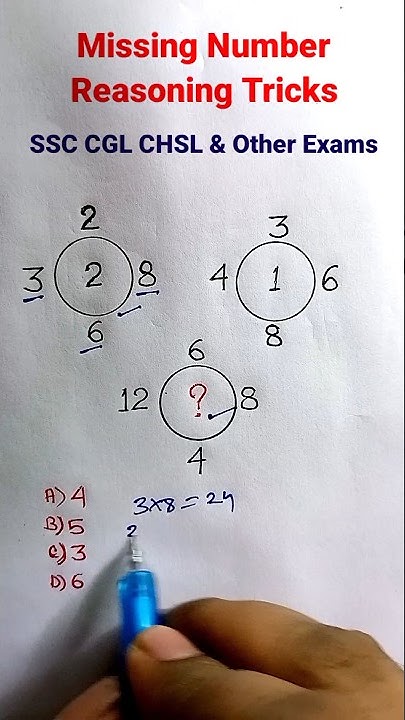 Missing Number
Reasoning Tricks
SSC CGL CHSL & Other Exams
2
3 2 8
6
3
4 1 6
8
6
12 ? 8
4
A) 4
B) 5
C) 3
D) 6
3×8=24
2